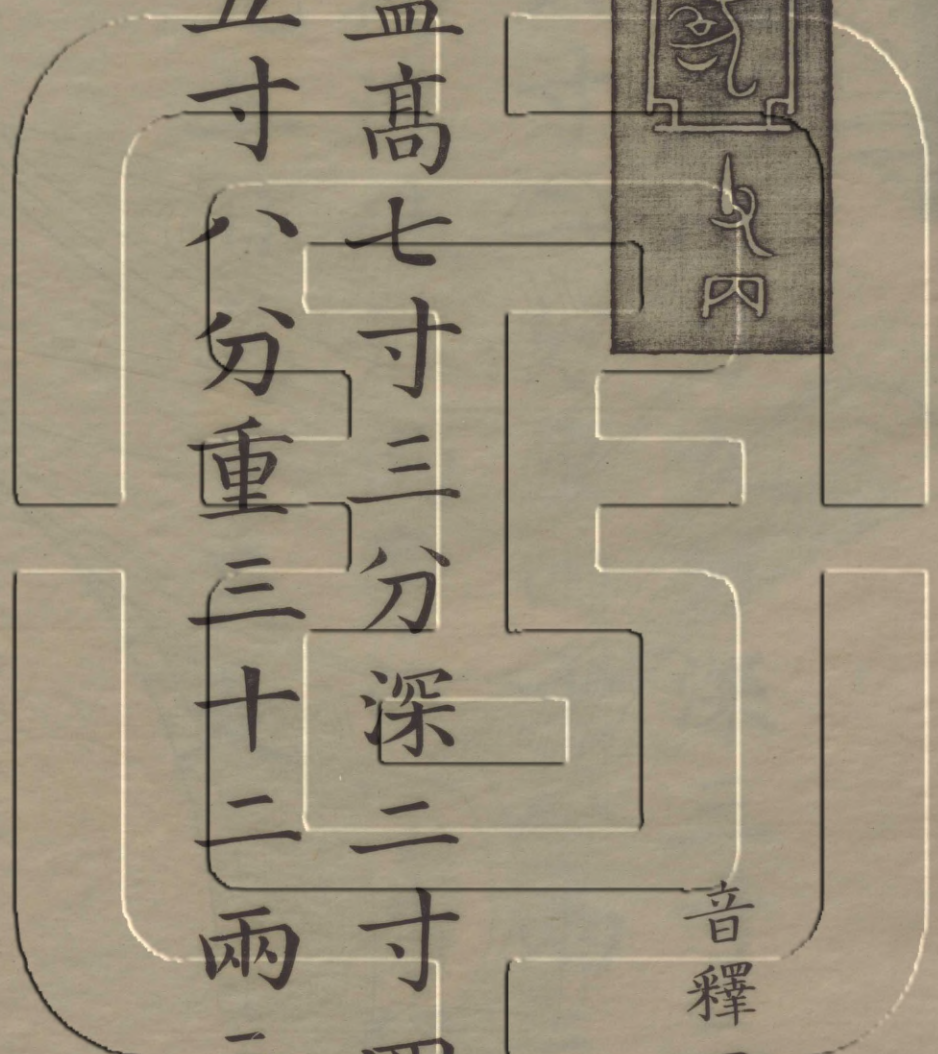 音釋
蓋高七寸三分深二寸
五寸八分重三十二兩